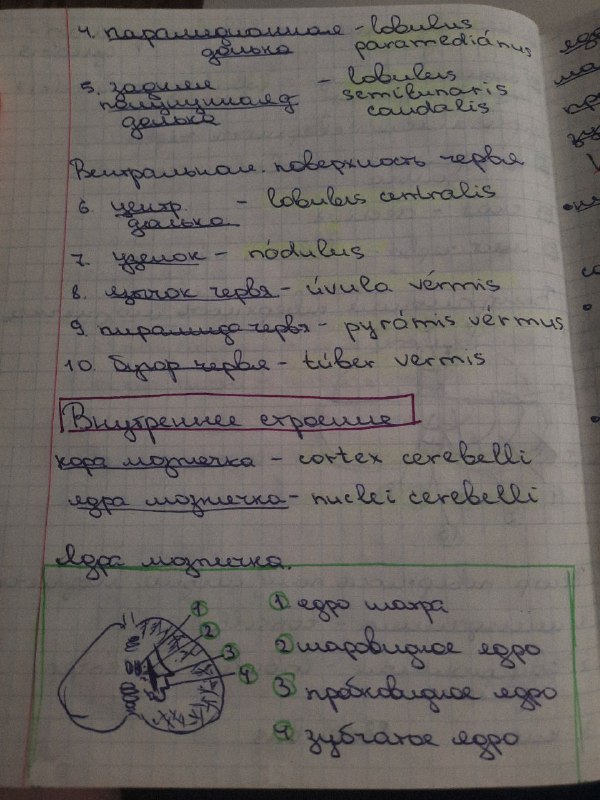 4. парамедианная - lobulus
долька paramediánus
5. задняя - lobulus
полулунная semilunaris
долька caudalis
Вентральная поверхность червя
6. центр. - lobulus centralis
долька
7. узелок - nódulus
8. язычок червя - úvula vérmis
9. пирамида червя - pyrámis vérmus
10. бугор червя - túber vermis
Внутреннее строение
кора мозжечка - cortex cerebelli
ядра мозжечка - nuclei cerebelli
Ядра мозжечка.
1 2 3 4
1 ядро шатра
2 шаровидное ядро
3 пробковидное ядро
4 зубчатое ядро